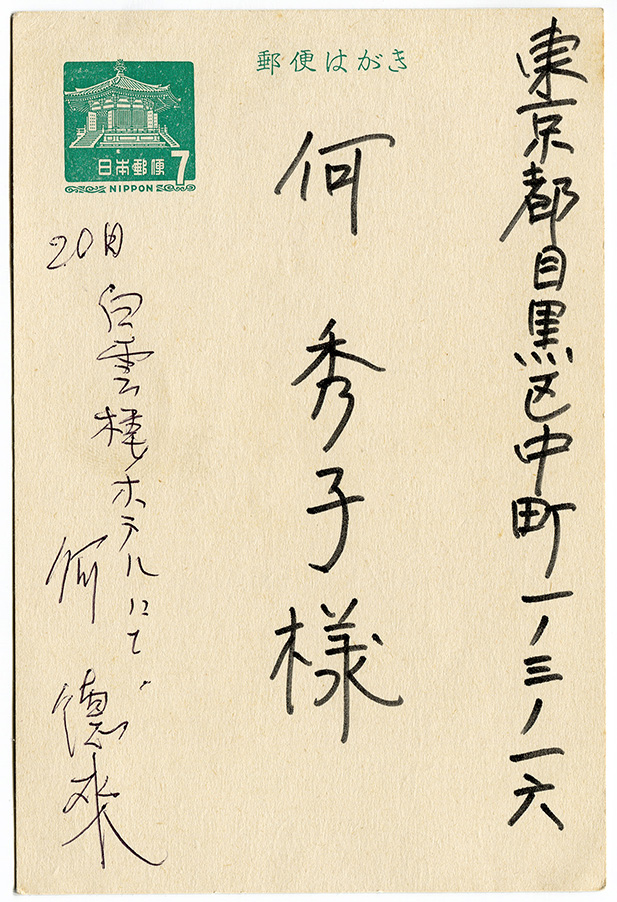 郵便はがき
日本郵便 7
NIPPON
東京都目黒区中町一ノ三ノ一六
何 秀子様
20日
白雲楼ホテルにて、
何 德来